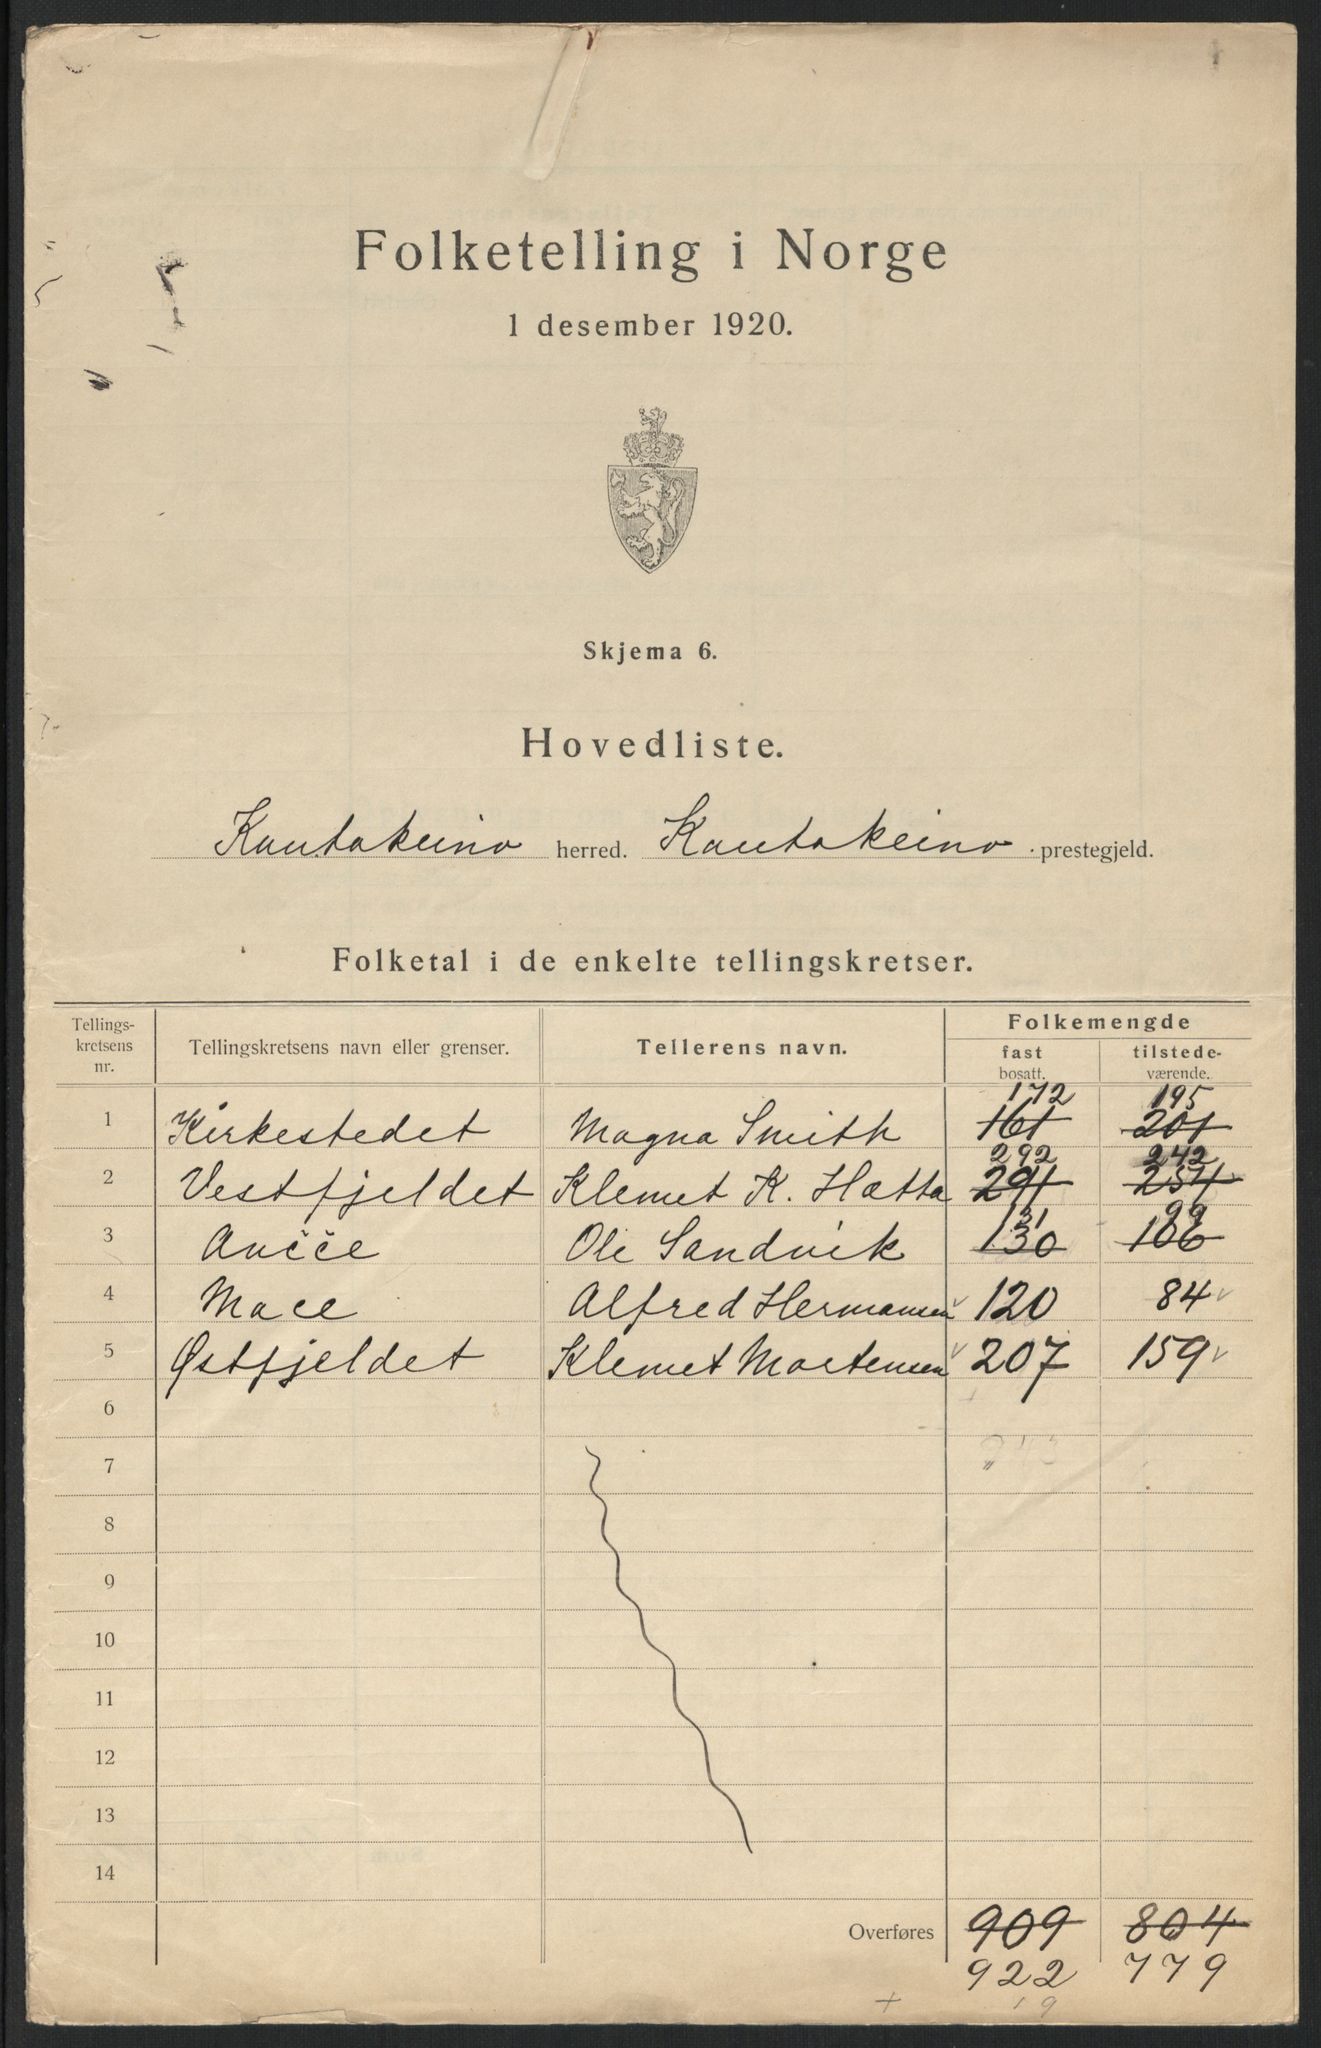 Folketelling i Norge
1 desember 1920.
Skjema 6.
Hovedliste.
Kautokeino herred. Kautokeino prestegjeld.
Folketal i de enkelte tellingskretser.
Tellings-
kretsens
nr.
Tellingskretsens navn eller grenser.
Tellerens navn.
Folkemengde
fast
bosatt.
tilstede-
værende.
172 195
1 Kirkestedet Magna Smith 161 201
292 242
2 Vestfjeldet Klemet K. Hætta 291 254
131 99
3 Aučče Ole Sandvik 130 106
4 Mace Alfred Hermansen 120 84
5 Østfjeldet Klemet Mortensen 207 159
6
7
8
9
10
11
12
13
14
Overføres 909 804
922 779